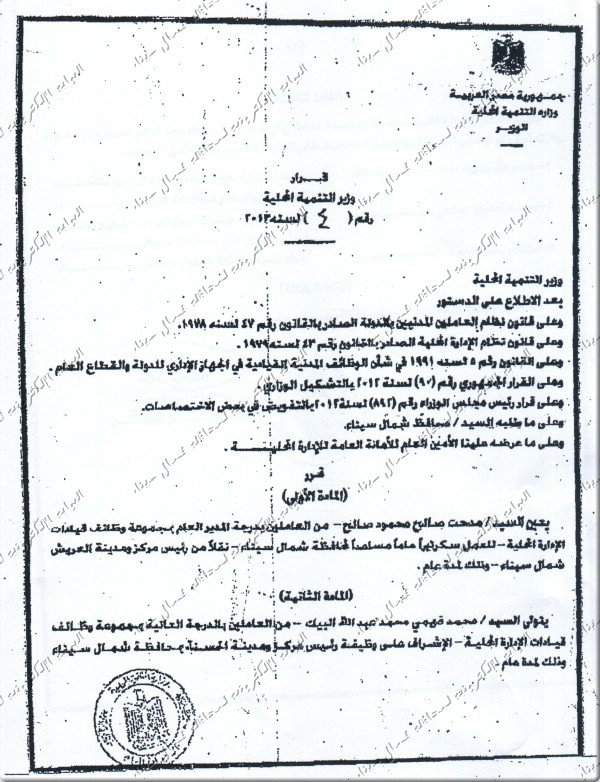 جمهورية مصر العربية
وزارة التنمية المحلية
الوزير
قـــرار
وزير التنمية المحلية
رقم ( ٤ ) لسنة ٢٠١٣
وزير التنمية المحلية
بعد الاطلاع على الدستور
وعلى قانون نظام العاملين المدنيين بالدولة الصادر بالقانون رقم ٤٧ لسنه ١٩٧٨.
وعلى قانون نظام الإدارة المحلية الصادر بالقانون رقم ٤٣ لسنه ١٩٧٩ .
وعلى القانون رقم ٥ لسنه ١٩٩١ في شأن الوظائف المدنية القيادية في الجهاز الإداري للدولة والقطاع العام .
وعلى القرار الجمهوري رقم (٩٠) لسنة ٢٠١٢ بالتشكيل الوزاري.
وعلى قرار رئيس مجلس الوزراء رقم (٨٩٢) لسنة ٢٠١٢ بالتفويض في بعض الاختصاصات.
وعلى ما طلبه السيد / محافظ شمال سيناء.
وعلى ما عرضه علينا الأمين العام للأمانة العامة للإدارة المحليـــة .
قرر
(المادة الأولى)
يعين السيد / مدحت صالح محمود صالح – من العاملين بدرجة المدير العام بمجموعة وظائف قيادات
الإدارة المحلية – للعمل سكرتيراً عاماً مساعداً لمحافظة شمال سيناء – نقلاً من رئيس مركز ومدينة العريش
شمال سيناء – وذلك لمدة عام .
(المادة الثانية)
يتولى السيد / محمد فهمي محمد عبد الله البيك – من العاملين بالدرجة العالية بمجموعة وظائف
قيادات الإدارة المحلية – الإشراف على وظيفة رئيس مركز ومدينة الحسنة بمحافظة شمال سيناء
وذلك لمدة عام
البوابة الالكترونية لمحافظة شمال سيناء